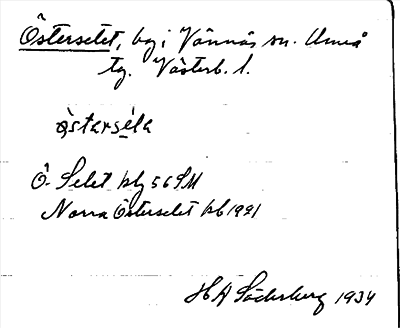 Östersetet, by i Vännäs sn. Umeå
tg. Västerb. l.
östarséla
Ö. Selet kbg 56 SM
Norra Österselet kb 1921
H A Söderberg 1934